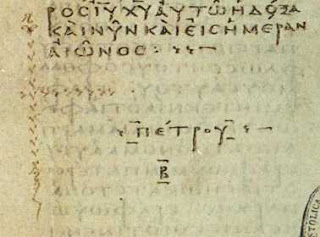 ΡΟΣ Ι̅Υ̅ Χ̅Υ̅ ΑΥΤΩ Η ΔΟΞΑ
ΚΑΙ ΝΥΝ ΚΑΙ ΕΙΣ ΗΜΕΡΑΝ
ΑΙΩΝΟΣ
ΠΕΤΡΟΥ
Β̅